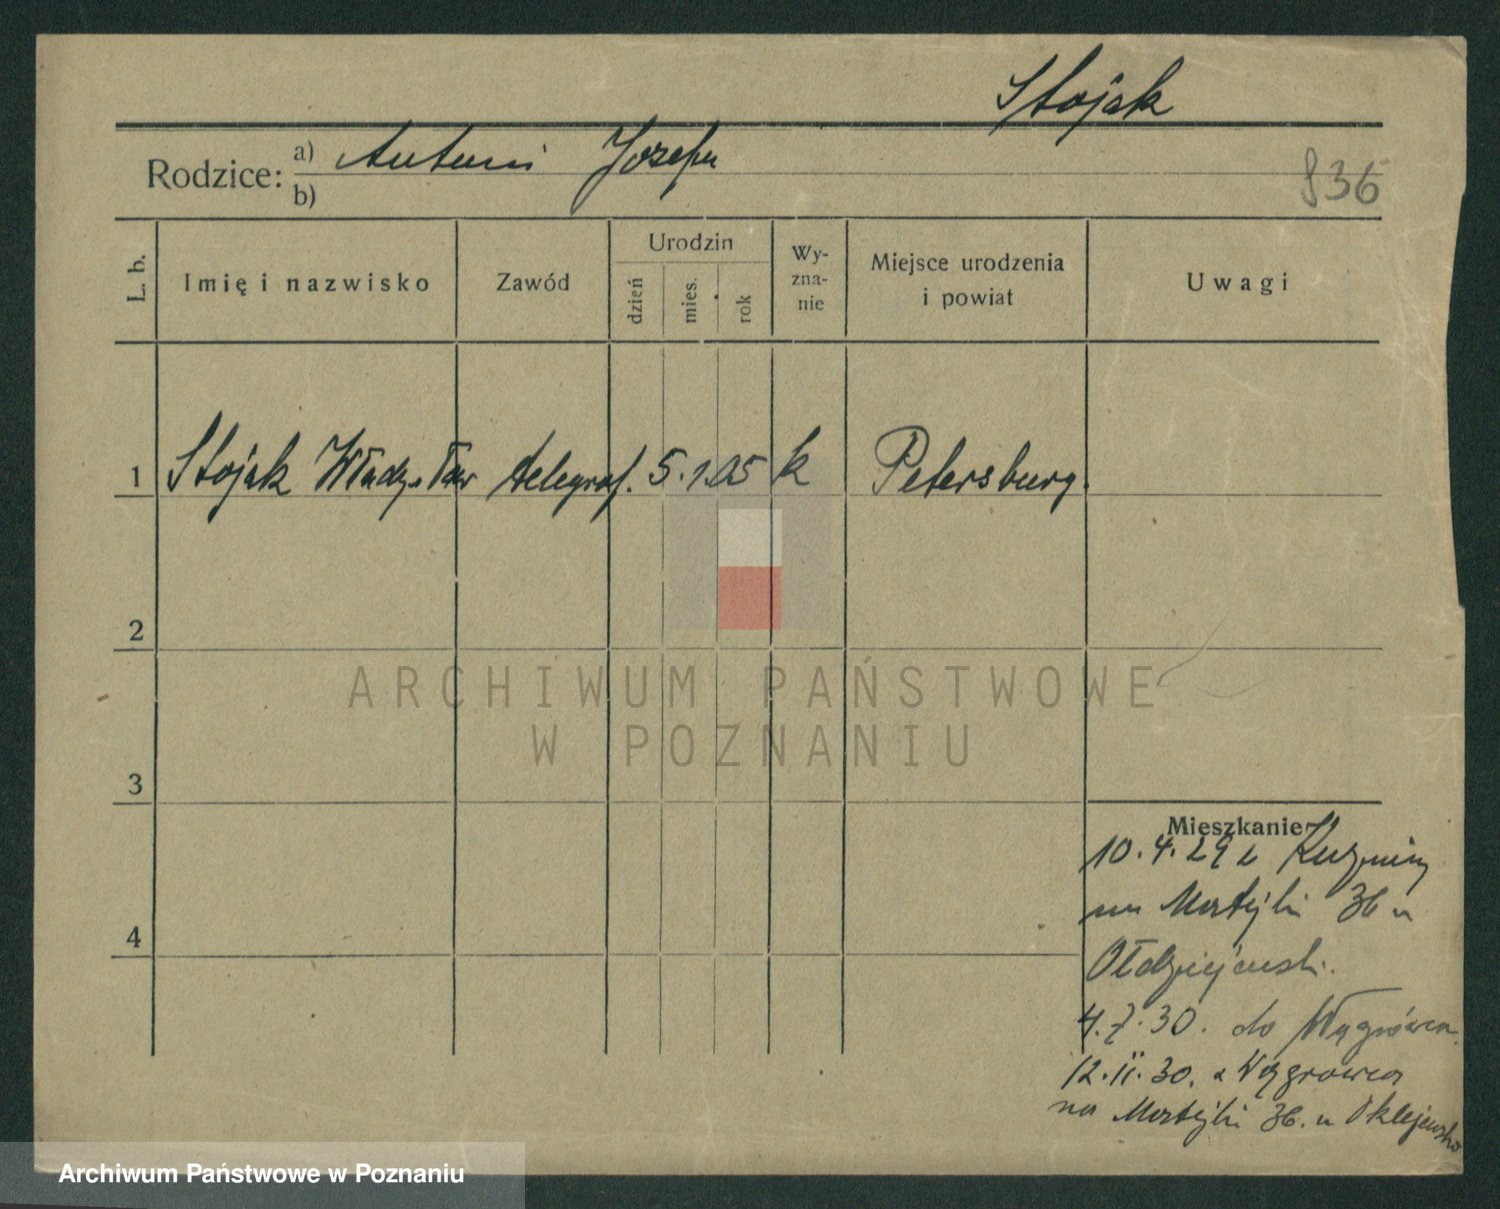 Stojak
Rodzice: a) Antoni Józefa
b)
836
L. b.
Imię i nazwisko
Zawód
Urodzin
dzień
mies.
rok
Wy-
zna-
nie
Miejsce urodzenia
i powiat
Uwagi
1 Stojak Władysław telegraf. 5. 1. 05 k Petersburg.
2
ARCHIWUM PAŃSTWOWE
W POZNANIU
3
Mieszkanie
10.4.29 z
na Matejki 36 u
4
4.7.30. do Wągrówca
12.II.30. z Wągrowca
na Matejki 36. u
Archiwum Państwowe w Poznaniu